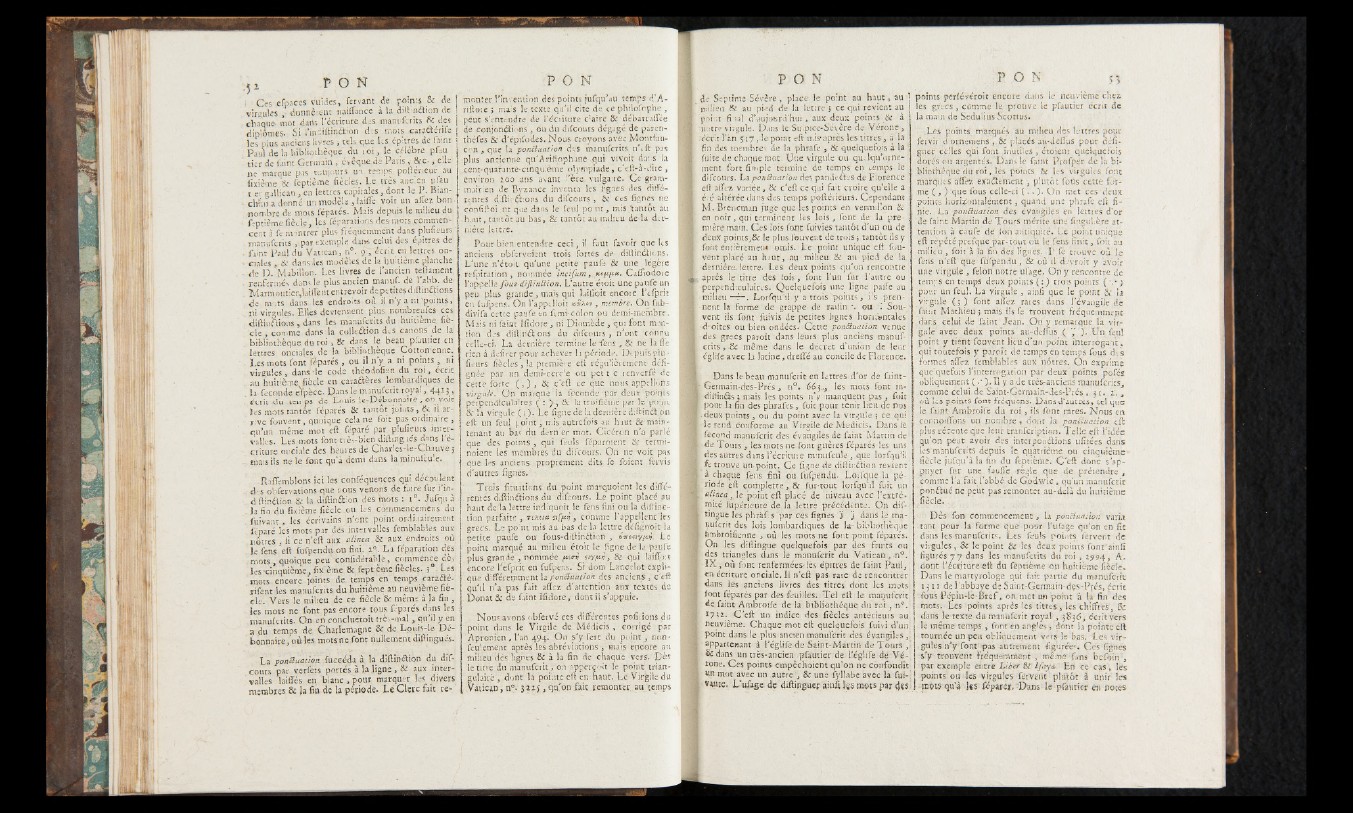 52 PON PON
Ces espaces vuides, servant de points & de
virgules, donnèrent naissance à la distinction de
chaque mot dans l'écriture des manuscrits & des
diplômes. Si l'indistinction des mots caractérise
les plus anciens livres, tels que les épîtres de saint
Paul de la bibliothèque du roi, le célèbre psau-
tier de saint Germain, évêque de Paris, &c., elle
ne marque pas toujours un temps postérieur au
sixième & septième siècles. Le très ancien psau-
tier gallican, en lettres capitales, dont le P. Bian-
chini a donné un modèle, laisse voir un assez bon
nombre de mots séparés. Mais depuis le milieu du
septième siècle, les séparations des mots commen-
cent à se montrer plus fréquemment dans plusieurs
manuscrits, par exemple dans celui des épîtres de
saint Paul du Vatican, n°. 9, écrit en lettres on-
ciales, & dans les modèles de la huitième planche
de D. Mabillon. Les livres de l'ancien testament
renfermés dans le plus ancien manus. de l'abb. de
Marmoutier, laissent entrevoir de petites distinctions
de mots dans les endroits où il n'y a ni points,
ni virgules. Elles deviennent plus nombreuses ces
distinctions, dans les manuscrits du huitième siè-
cle, comme dans la collection des canons de la
bibliothèque du roi, & dans le beau psautier en
lettres onciales de la bibliothèque Cottonienne.
Les mots sont séparés, où il n'y a ni points, ni
virgules, dans le code théodosien du roi, écrit
au huitième siècle en caractères lombardiques de
la seconde espèce. Dans le manuscrit royal, 4413,
écrit du temps de Louis le-Débonnaire, on voit
les mots tantôt séparés & tantôt joints, & il ar-
rive souvent, quoique cela ne soit pas ordinaire,
qu'un même mot est séparé par plusieurs inter-
valles. Les mots sont très-bien distingués dans l'é-
criture onciale des heures de Charles-le-Chauve;
mais ils ne le sont qu'à demi dans la minuscule.
Rassemblons ici les conséquences qui découlent
des observations que nous venons de faire sur l'in-
distinction & la distinction des mots : 1°. Jusqu'à
la fin du sixième siècle ou les commencemens du
suivant, les écrivains n'ont point ordinairement
séparé les mots par des intervalles semblables aux
nôtres, si ce n'est aux alinea & aux endroits où
le sens est suspendu ou fini. 2°. La séparation des
mots, quoique peu considérable, commence dès
les cinquième, sixième & septième siècles. 3° Les
mots encore joints de temps en temps caracté-
risent les manuscrits du huitième au neuvième siè-
cle. Vers le milieu de ce siècle & même à la fin,
les mots ne sont pas encore tous séparés dans les
manuscrits. On en concluroit très-mal, qu'il y en
a du temps de Charlemagne & de Louis-le Dé-
bonnaire, où les mots ne sont nullement distingués.
La ponctuation succéda à la distinction du dis-
cours par versets portés à la ligne, & aux inter-
valles laissés en blanc, pour marquer les divers
membres & la fin de la période. Le Clerc fait re-
monter l'invention des points jusqu'au temps d'A-
ristote ; mais le texte qu'il cite de ce philosophe,
peut s'entendre de l'écriture claire & débarrassée
de conjonctions, ou du discours dégagé de paren-
thèses & d'épisodes. Nous croyons avec Montfau-
con, que la ponctuation des manuscrits n'est pas
plus ancienne qu'Aristophane qui vivoit dans la
cent-quarante-cinquième olympiade, c'est-à-dire,
environ 200 ans avant l'ère vulgaire. Ce gram-
mairien de Byzance inventa les signes des diffé-
rentes distinctions du discours, & ces signes ne
consistoient que dans le seul point, mis tantôt au
haut, tantôt au bas, & tantôt au milieu de la der-
nière lettre.
Pour bien entendre ceci, il faut savoir que les
anciens observoient trois sortes de distinctions.
L'une n'étoit qu'une petite pause & une légère
respiration, nommée incisum, κόμμα. Cassiodore
l'appelle sous distinction. L'autre étoit une pause un
peu plus grande, mais qui laissoit encore l'esprit
en suspens. On l'appelloit κῶλον, membre. On sub-
divisa cette pause en semi-colon ou demi-membre.
Mais ni saint Isidore, ni Diomède, qui font men-
tion des distinctions du discours, n'ont connu
celle-ci. La dernière termine le sens, & ne laisse
rien à desirer pour achever la période. Depuis plu-
sieurs siècles, la première est régulièrement dési-
gnée par un demi-cercle ou petit c renversé de
cette sorte ( , ), & c'est ce que nous appellons
virgule. On marque la seconde par deux points
perpendiculaires ( : ), & la troisième par le point
& la virgule ( ; ). Le signe de la dernière distinction
est un seul point, mis autrefois au haut & main-
tenant au bas du dernier mot. Cicéron n'a parlé
que des points, qui seuls séparoient & termi-
noient les membres du discours. On ne voit pas
que les anciens proprement dits se soient servis
d'autres signes.
Trois situations du point marquoient les diffé-
rentes distinctions du discours. Le point placé au
haut de la lettre indiquoit le sens fini ou la distinc-
tion parfaite, τελεία στιγμή, comme l'appellent les
grecs. Le point mis au bas de la lettre désignoit la
petite pause ou sous-distinction, ὑποστιγμή. Le
point marqué au milieu étoit le signe de la pause
plus grande, nommée μέση στιγμή, & qui laissoit
encore l'esprit en suspens. Si dom Lancelot expli-
que différemment la ponctuation des anciens, c'est
qu'il n'a pas fait assez d'attention aux textes de
Donat & de saint Isidore, dont il s'appuie.
Nous avons observé ces différentes positions du
point dans le Virgile de Médicis, corrigé par
Apronien, l'an 494. On s'y sert du point, non-
seulement après les abréviations, mais encore au
milieu des lignes & à la fin de chaque vers. Dès
le titre du manuscrit, on apperçoit le point trian-
gulaire, dont la pointe est en haut. Le Virgile du
Vatican, n°. 3225, qu'on fait remonter au temps
PON PON 53
de Septime Sévère, place le point au haut, au
milieu & au pied de la lettre ; ce qui revient au
point final d'aujourd'hui, aux deux points & à
notre virgule. Dans le Sulpice-Sévère de Vérone,
écrit l'an 517, le point est mis après les titres, à la
fin des membres de la phrase, & quelquefois à la
suite de chaque mot. Une virgule ou quelqu'orne-
ment fort simple termine de temps en temps le
discours. La ponctuation des pandectes de Florence
est assez variée, & c'est ce qui fait croire qu'elle a
été altérée dans des temps postérieurs. Cependant
M. Brencman juge que les points en vermillon &
en noir, qui terminent les lois, sont de la pre-
mière main. Ces lois sont suivies tantôt d'un ou de
deux points, & le plus souvent de trois ; tantôt ils y
sont entièrement omis. Le point unique est sou-
vent placé au haut, au milieu & au pied de la
dernière lettre. Les deux points qu'on rencontre
après le titre des lois, sont l'un sur l'autre ou
perpendiculaires. Quelquefois une ligne passe au
milieu —. Lorsqu'il y a trois points, ils pren-
nent la forme de grappe de raisin ∵ ou ∴ Sou-
vent ils sont suivis de petites lignes horizontales
droites ou bien ondées. Cette ponctuation venue
des grecs paroît dans leurs plus anciens manus-
crits, & même dans le decret d'union de leur
église avec la latine, dressé au concile de Florence.
Dans le beau manuscrit en lettres d'or de saint-
Germain-des-Prés, n°. 663, les mots sont in-
distincts ; mais les points n'y manquent pas, soit
pour la fin des phrases, soit pour tenir lieu de nos
deux points, ou du point avec la virgule ; ce qui
le rend conforme au Virgile de Médicis. Dans le
second manuscrit des évangiles de saint Martin de
Tours, les mots ne sont guères séparés les uns
des autres dans l'écriture minuscule, que lorsqu'il
se trouve un point. Ce signe de distinction revient
à chaque sens fini ou suspendu. Lorsque la pé-
riode est complette, & sur-tout lorsqu'il suit un
alinea, le point est placé de niveau avec l'extré-
mité supérieure de la lettre précédente. On dis-
tingue les phrases par ces signes 3 3 dans le ma-
nuscrit des lois lombardiques de la bibliothèque
ambroisienne, où les mots ne sont point séparés.
On les distingue quelquefois par des fruits ou
des triangles dans le manuscrit du Vatican, n°.
IX, où sont renfermées les épîtres de saint Paul,
en écriture onciale. Il n'est pas rare de rencontrer
dans les anciens livres des titres dont les mots
sont séparés par des feuilles. Tel est le manuscrit
de saint Ambroise de la bibliothèque du roi, n°.
1732. C'est un indice des siècles antérieurs au
neuvième. Chaque mot est quelquefois suivi d'un
point dans le plus ancien manuscrit des évangiles,
appartenant à l'église de Saint-Martin de Tours,
& dans un très-ancien psautier de l'église de Vé-
rone. Ces points empêchoient qu'on ne confondît
un mot avec un autre, & une syllabe avec la sui-
vante. L'usage de distinguer ainsi les mots par des
points persévéroit encore dans le neuvième chez
les grecs, comme le prouve le psautier écrit de
la main de Sedulius Scottus.
Les points marqués au milieu des lettres pour
servir d'ornemens, & placés au-dessus pour dési-
gner celles qui sont inutiles, étoient quelquefois
dorés ou argentés. Dans le saint Prosper de la bi-
bliothèque du roi, les points & les virgules sont
marqués assez exactement, plutôt sous cette for-
me ( , ) que sous celle-ci ( . ). On met ces deux
points horizontalement, quand une phrase est fi-
nie. La ponctuation des évangiles en lettres d'or
de saint Martin de Tours mérite une singulière at-
tention à cause de son antiquité. Le point unique
est répété presque par-tout où le sens finit, soit au
milieu, soit à la fin des lignes. Il se trouve où le
sens n'est que suspendu, & où il devroit y avoir
une virgule, selon notre usage. On y rencontre de
temps en temps deux points ( : ) trois points ( ∴ )
pour un seul. La virgule, ainsi que le point & la
virgule ( ; ) sont assez rares dans l'évangile de
saint Mathieu ; mais ils se trouvent fréquemment
dans celui de saint Jean. On y remarque la vir-
gule avec deux points au-dessus. Un seul
point y tient souvent lieu d'un point interrogant,
qui toutefois y paroît de temps en temps sous des
formes assez semblables aux nôtres. On exprime
quelquefois l'interrogation par deux points posés
obliquement ( .· ). Il y a de très-anciens manuscrits,
comme celui de Saint-Germain-des-Prés,
où les points sont fréquens. Dans d'autres, tel que
le saint Ambroise du roi, ils sont rares. Nous en
connoissons un nombre, dont la ponctuation est
plus récente que leur transcription. Telle est l'idée
qu'on peut avoir des interponctions usitées dans
les manuscrits depuis le quatrième ou cinquième
siècle jusqu'à la fin du septième. C'est donc s'ap-
puyer sur une fausse règle que de prétendre,
comme l'a fait l'abbé de Godwic, qu'un manuscrit
ponctué ne peut pas remonter au-delà du huitième
siècle.
Dès son commencement, la ponctuation varia
tant pour la forme que pour l'usage qu'on en fit
dans les manuscrits. Les seuls points servent de
virgules, & le point & les deux points sont ainsi
figurés 7 7 dans les manuscrits du roi, 2994, A.
dont l'écriture est du septième ou huitième siècle.
Dans le martyrologe qui fait partie du manuscrit
1311 de l'abbaye de Saint-Germain-des-Prés, écrit
sous Pépin-le-Bref, on met un point à la fin des
mots. Les points après les titres, les chiffres, &
dans le texte du manuscrit royal, 3836, écrit vers
le même temps, sont en angles, dont la pointe est
tournée un peu obliquement vers le bas. Les vir-
gules n'y sont pas autrement figurées. Ces signes
s'y trouvent fréquemment, même sans besoin,
par exemple entre Liber & En ce cas, les
points ou les virgules servent plutôt à unir les
mots qu'à les séparer. Dans le psautier en notes